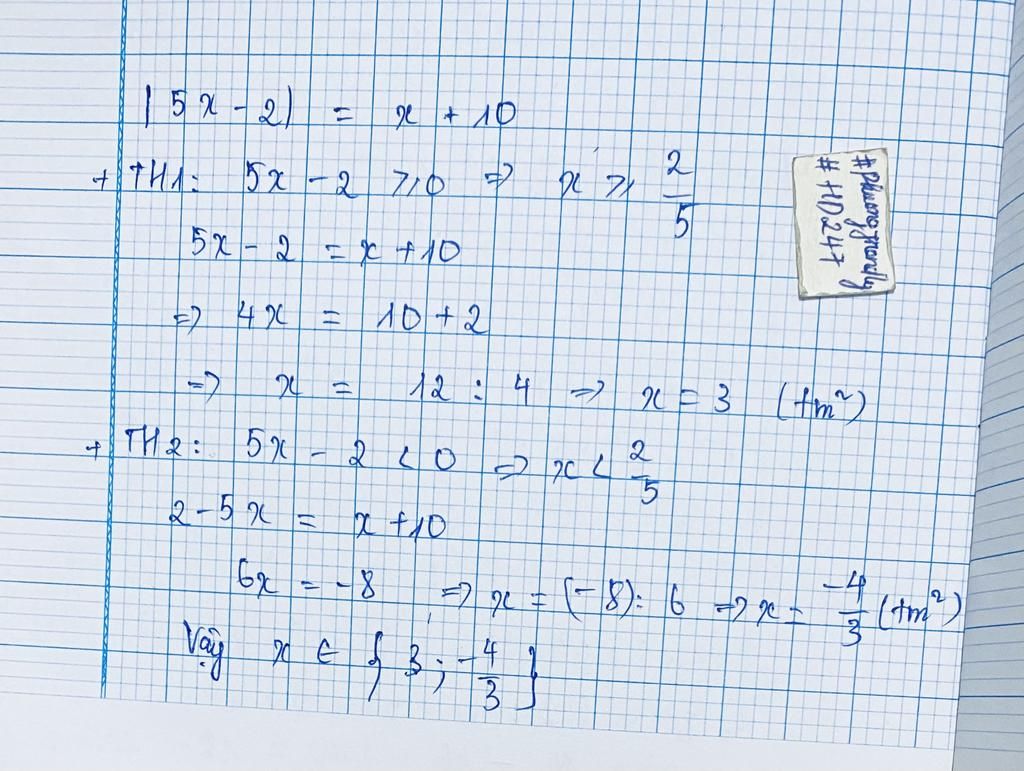 |5x - 2| = x + 10
+ TH1: 5x - 2 ⩾ 0 => x ⩾ 2/5
5x - 2 = x + 10
=> 4x = 10 + 2
=> x = 12 : 4 => x = 3 (tm²)
+ TH2: 5x - 2 < 0 => x < 2/5
2 - 5x = x + 10
6x = -8 => x = (-8) : 6 => x = -4/3 (tm²)
Vậy x ∈ { 3 ; -4/3 }
# HD247